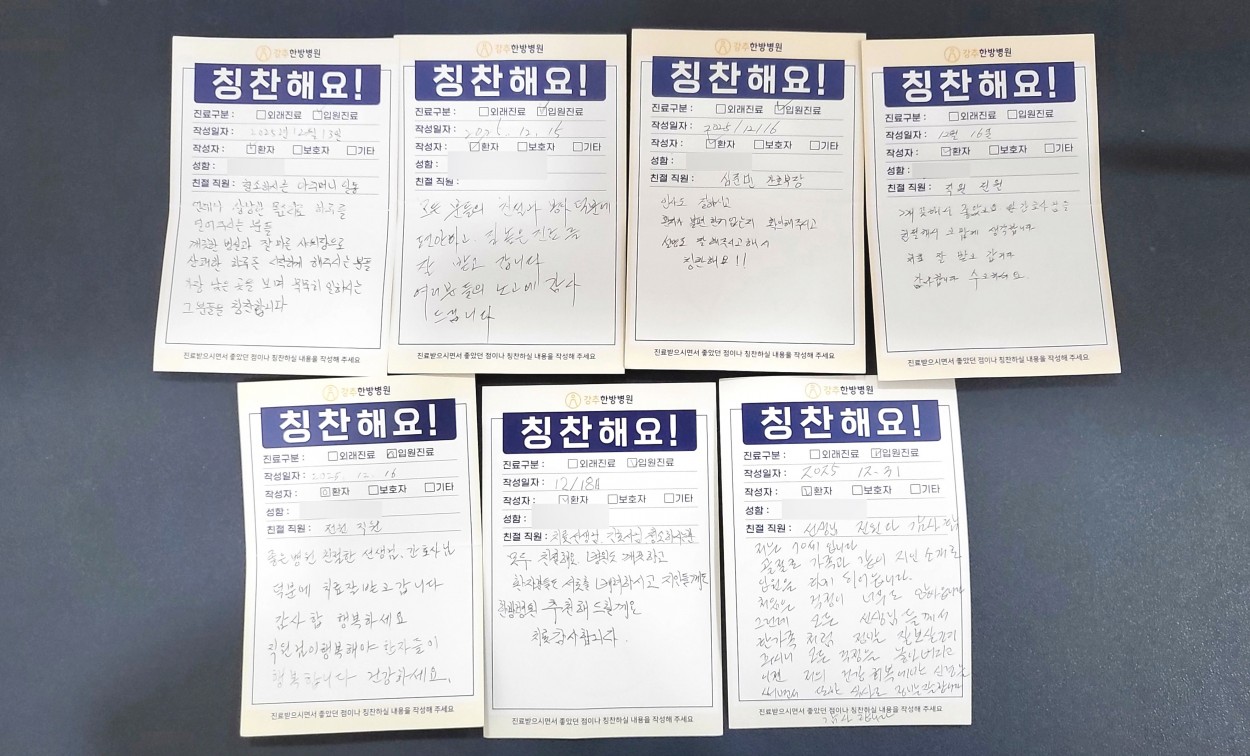 강추한방병원
칭찬해요!
진료구분 : 외래진료 입원진료
작성일자 : 2025년 12월 13일
작성자 : 환자 보호자 기타
성함 :
친절 직원 : 청소하시는 아주머니
언제나 상냥한 하루를
열어주시는 분들
깨끗한 병실과
하루를 해주시는 분들
낮은 곳을 보며 묵묵히 일하시는
그분들을 칭찬합니다
진료받으시면서 좋았던 점이나 칭찬하실 내용을 작성해 주세요
강추한방병원
칭찬해요!
진료구분 : 외래진료 입원진료
작성일자 : 2025. 12. 15
작성자 : 환자 보호자 기타
성함 :
친절 직원 :
모든 분들의 친절과 봉사 덕분에
편안하고 질 높은 진료를
잘 받고 갑니다
여러분들의 노고에 감사
드립니다
진료받으시면서 좋았던 점이나 칭찬하실 내용을 작성해 주세요
강추한방병원
칭찬해요!
진료구분 : 외래진료 입원진료
작성일자 : 2025/12/16
작성자 : 환자 보호자 기타
성함 :
친절 직원 : 심준민 간호부장
인사도 잘하시고
환자가 불편한거 없는지 확인해주시고
설명도 잘 해주시고해서
칭찬해요!!
진료받으시면서 좋았던 점이나 칭찬하실 내용을 작성해 주세요
강추한방병원
칭찬해요!
진료구분 : 외래진료 입원진료
작성일자 : 12월 16일
작성자 : 환자 보호자 기타
성함 :
친절 직원 : 직원 전원
깨끗해서 좋았고요
친절해서 고맙게 생각합니다
치료 잘 받고 갑니다
감사합니다 수고하세요
진료받으시면서 좋았던 점이나 칭찬하실 내용을 작성해 주세요
강추한방병원
칭찬해요!
진료구분 : 외래진료 입원진료
작성일자 : 2025. 12. 16
작성자 : 환자 보호자 기타
성함 :
친절 직원 : 전원 직원
좋은병원 친절한 선생님, 간호사님
덕분에 치료잘받고갑니다
감사합 행복하세요
직원님이행복해야 환자들이
행복합니다 건강하세요.
진료받으시면서 좋았던 점이나 칭찬하실 내용을 작성해 주세요
강추한방병원
칭찬해요!
진료구분 : 외래진료 입원진료
작성일자 : 12/18日
작성자 : 환자 보호자 기타
성함 :
친절 직원 : 치료선생님, 간호사님 청소하는분
모두 친절해요 병원도 깨끗하고
환자분들도 서로를 배려하시고 지인들께도
한방병원 추천해 드릴께요
치료 감사합니다.
진료받으시면서 좋았던 점이나 칭찬하실 내용을 작성해 주세요
강추한방병원
칭찬해요!
진료구분 : 외래진료 입원진료
작성일자 : 2025 12-31
작성자 : 환자 보호자 기타
성함 :
친절 직원 : 선생님 전원 다 감사함
저는 70세 입니다
골절로 가족과 같이 지인 소개로
입원을 하게 되어습니다.
처음은 걱정이 너무도
그런데 모든 선생님들께서
한가족 처럼
주시니 모든 걱정은
이젠 저의 건강 회복에만
감사 합니다
진료받으시면서 좋았던 점이나 칭찬하실 내용을 작성해 주세요